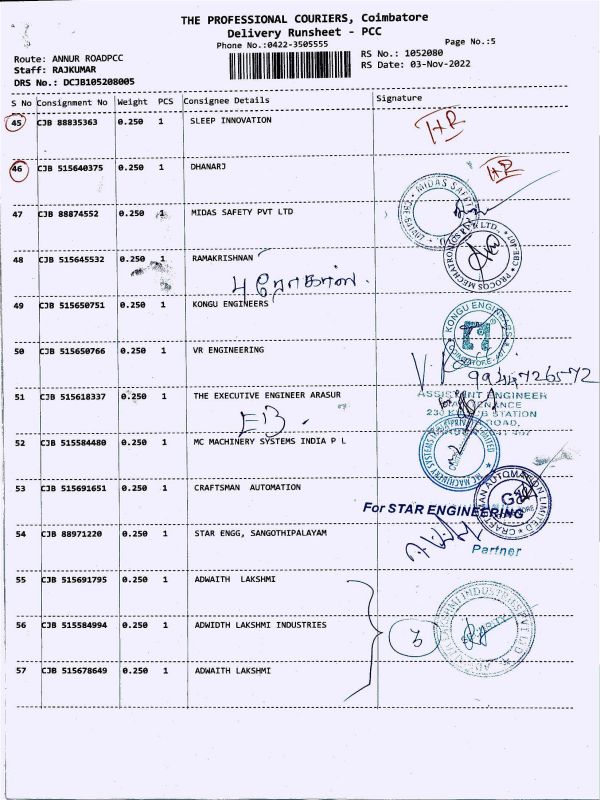 THE PROFESSIONAL COURIERS, Coimbatore
Delivery Runsheet - PCC
Phone No.:0422-3505555
Page No.:5
Route: ANNUR ROADPCC
RS No.: 1052080
Staff: RAJKUMAR
RS Date: 03-Nov-2022
DRS No.: DCJB105208005
S No Consignment No Weight PCS Consignee Details Signature
45 CJB 88835363 0.250 1 SLEEP INNOVATION
46 CJB 515640375 0.250 1 DHANARJ
MIDAS SAFETY
47 CJB 88874552 0.250 1 MIDAS SAFETY PVT LTD
PROCOS MECHATRONICS PVT LTD. CBE-407
48 CJB 515645532 0.250 1 RAMAKRISHNAN
49 CJB 515650751 0.250 1 KONGU ENGINEERS
KONGU ENGINEERS
50 CJB 515650766 0.250 1 VR ENGINEERING
51 CJB 515618337 0.250 1 THE EXECUTIVE ENGINEER ARASUR
ASSISTANT ENGINEER
EB.
52 CJB 515584480 0.250 1 MC MACHINERY SYSTEMS INDIA P L
MC MACHINERY SYSTEMS
53 CJB 515691651 0.250 1 CRAFTSMAN AUTOMATION
CRAFTSMAN AUTOMATION LIMITED
For STAR ENGINEERING
54 CJB 88971220 0.250 1 STAR ENGG, SANGOTHIPALAYAM
Partner
55 CJB 515691795 0.250 1 ADWAITH LAKSHMI
56 CJB 515584994 0.250 1 ADWIDTH LAKSHMI INDUSTRIES
3
57 CJB 515678649 0.250 1 ADWAITH LAKSHMI